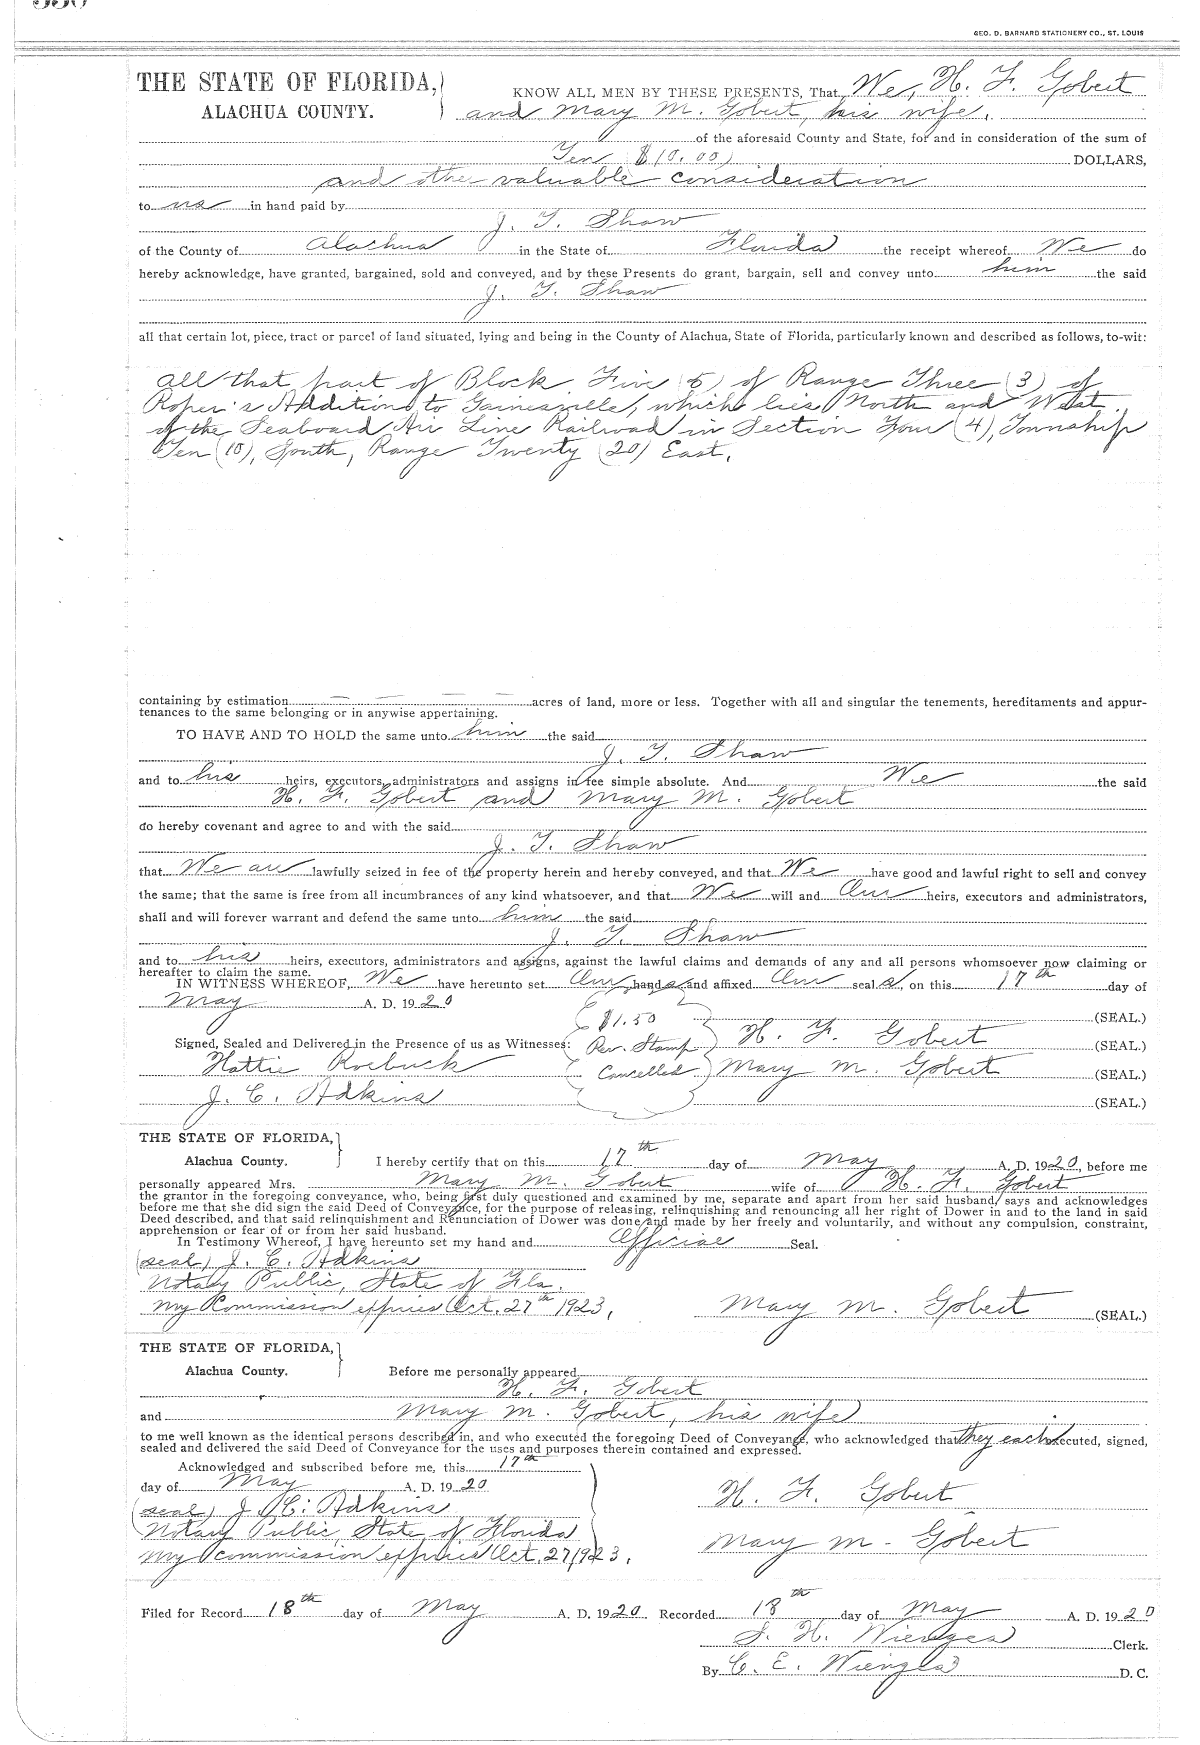 GEO. D. BARNARD STATIONERY CO., ST. LOUIS
THE STATE OF FLORIDA,
ALACHUA COUNTY.
KNOW ALL MEN BY THESE PRESENTS, That We, H. F. Gobert
and Mary M. Gobert, his wife,
of the aforesaid County and State, for and in consideration of the sum of
Ten $10.00) DOLLARS,
and other valuable consideration
to us in hand paid by
J. T. Shaw
of the County of Alachua in the State of Florida the receipt whereof We do
hereby acknowledge, have granted, bargained, sold and conveyed, and by these Presents do grant, bargain, sell and convey unto him the said
J. T. Shaw
all that certain lot, piece, tract or parcel of land situated, lying and being in the County of Alachua, State of Florida, particularly known and described as follows, to-wit:
All that part of Block Five (5) of Range Three (3) of
Roper's Addition to Gainesville, which lies North and West
of the Seaboard Air Line Railroad in Section Four (4), Township
Ten (10), South, Range Twenty (20) East.
containing by estimation — — — — acres of land, more or less. Together with all and singular the tenements, hereditaments and appur-
tenances to the same belonging or in anywise appertaining.
TO HAVE AND TO HOLD the same unto him the said
J. T. Shaw
and to his heirs, executors, administrators and assigns in fee simple absolute. And We the said
H. F. Gobert and Mary M. Gobert
do hereby covenant and agree to and with the said
J. T. Shaw
that We are lawfully seized in fee of the property herein and hereby conveyed, and that We have good and lawful right to sell and convey
the same; that the same is free from all incumbrances of any kind whatsoever, and that We will and Our heirs, executors and administrators,
shall and will forever warrant and defend the same unto him the said
J. T. Shaw
and to his heirs, executors, administrators and assigns, against the lawful claims and demands of any and all persons whomsoever now claiming or
hereafter to claim the same.
IN WITNESS WHEREOF, We have hereunto set Our hands and affixed Our seals, on this 17th day of
May A. D. 1920
(SEAL.)
$1.50
Rev. Stamp
Cancelled
Signed, Sealed and Delivered in the Presence of us as Witnesses: H. F. Gobert (SEAL.)
Hattie Roebuck Mary M. Gobert (SEAL.)
J. C. Adkins (SEAL.)
THE STATE OF FLORIDA,
Alachua County.
I hereby certify that on this 17th day of May A. D. 1920, before me
personally appeared Mrs. Mary M. Gobert wife of H. F. Gobert
the grantor in the foregoing conveyance, who, being first duly questioned and examined by me, separate and apart from her said husband, says and acknowledges
before me that she did sign the said Deed of Conveyance, for the purpose of releasing, relinquishing and renouncing all her right of Dower in and to the land in said
Deed described, and that said relinquishment and Renunciation of Dower was done and made by her freely and voluntarily, and without any compulsion, constraint,
apprehension or fear of or from her said husband.
In Testimony Whereof, I have hereunto set my hand and Official Seal.
(seal) J. C. Adkins
Notary Public, State of Fla.
My Commission expires Oct. 27th 1923, Mary M. Gobert (SEAL.)
THE STATE OF FLORIDA,
Alachua County.
Before me personally appeared
H. F. Gobert
and Mary M. Gobert, his wife
to me well known as the identical persons described in, and who executed the foregoing Deed of Conveyance, who acknowledged that they each executed, signed,
sealed and delivered the said Deed of Conveyance for the uses and purposes therein contained and expressed.
Acknowledged and subscribed before me, this 17th
day of May A. D. 1920
(seal) J. C. Adkins H. F. Gobert
Notary Public, State of Florida
My commission expires Oct. 27, 1923. Mary M. Gobert
Filed for Record 18th day of May A. D. 1920 Recorded 18th day of May A. D. 1920
S. H. Wienges Clerk.
By C. E. Wienges D. C.